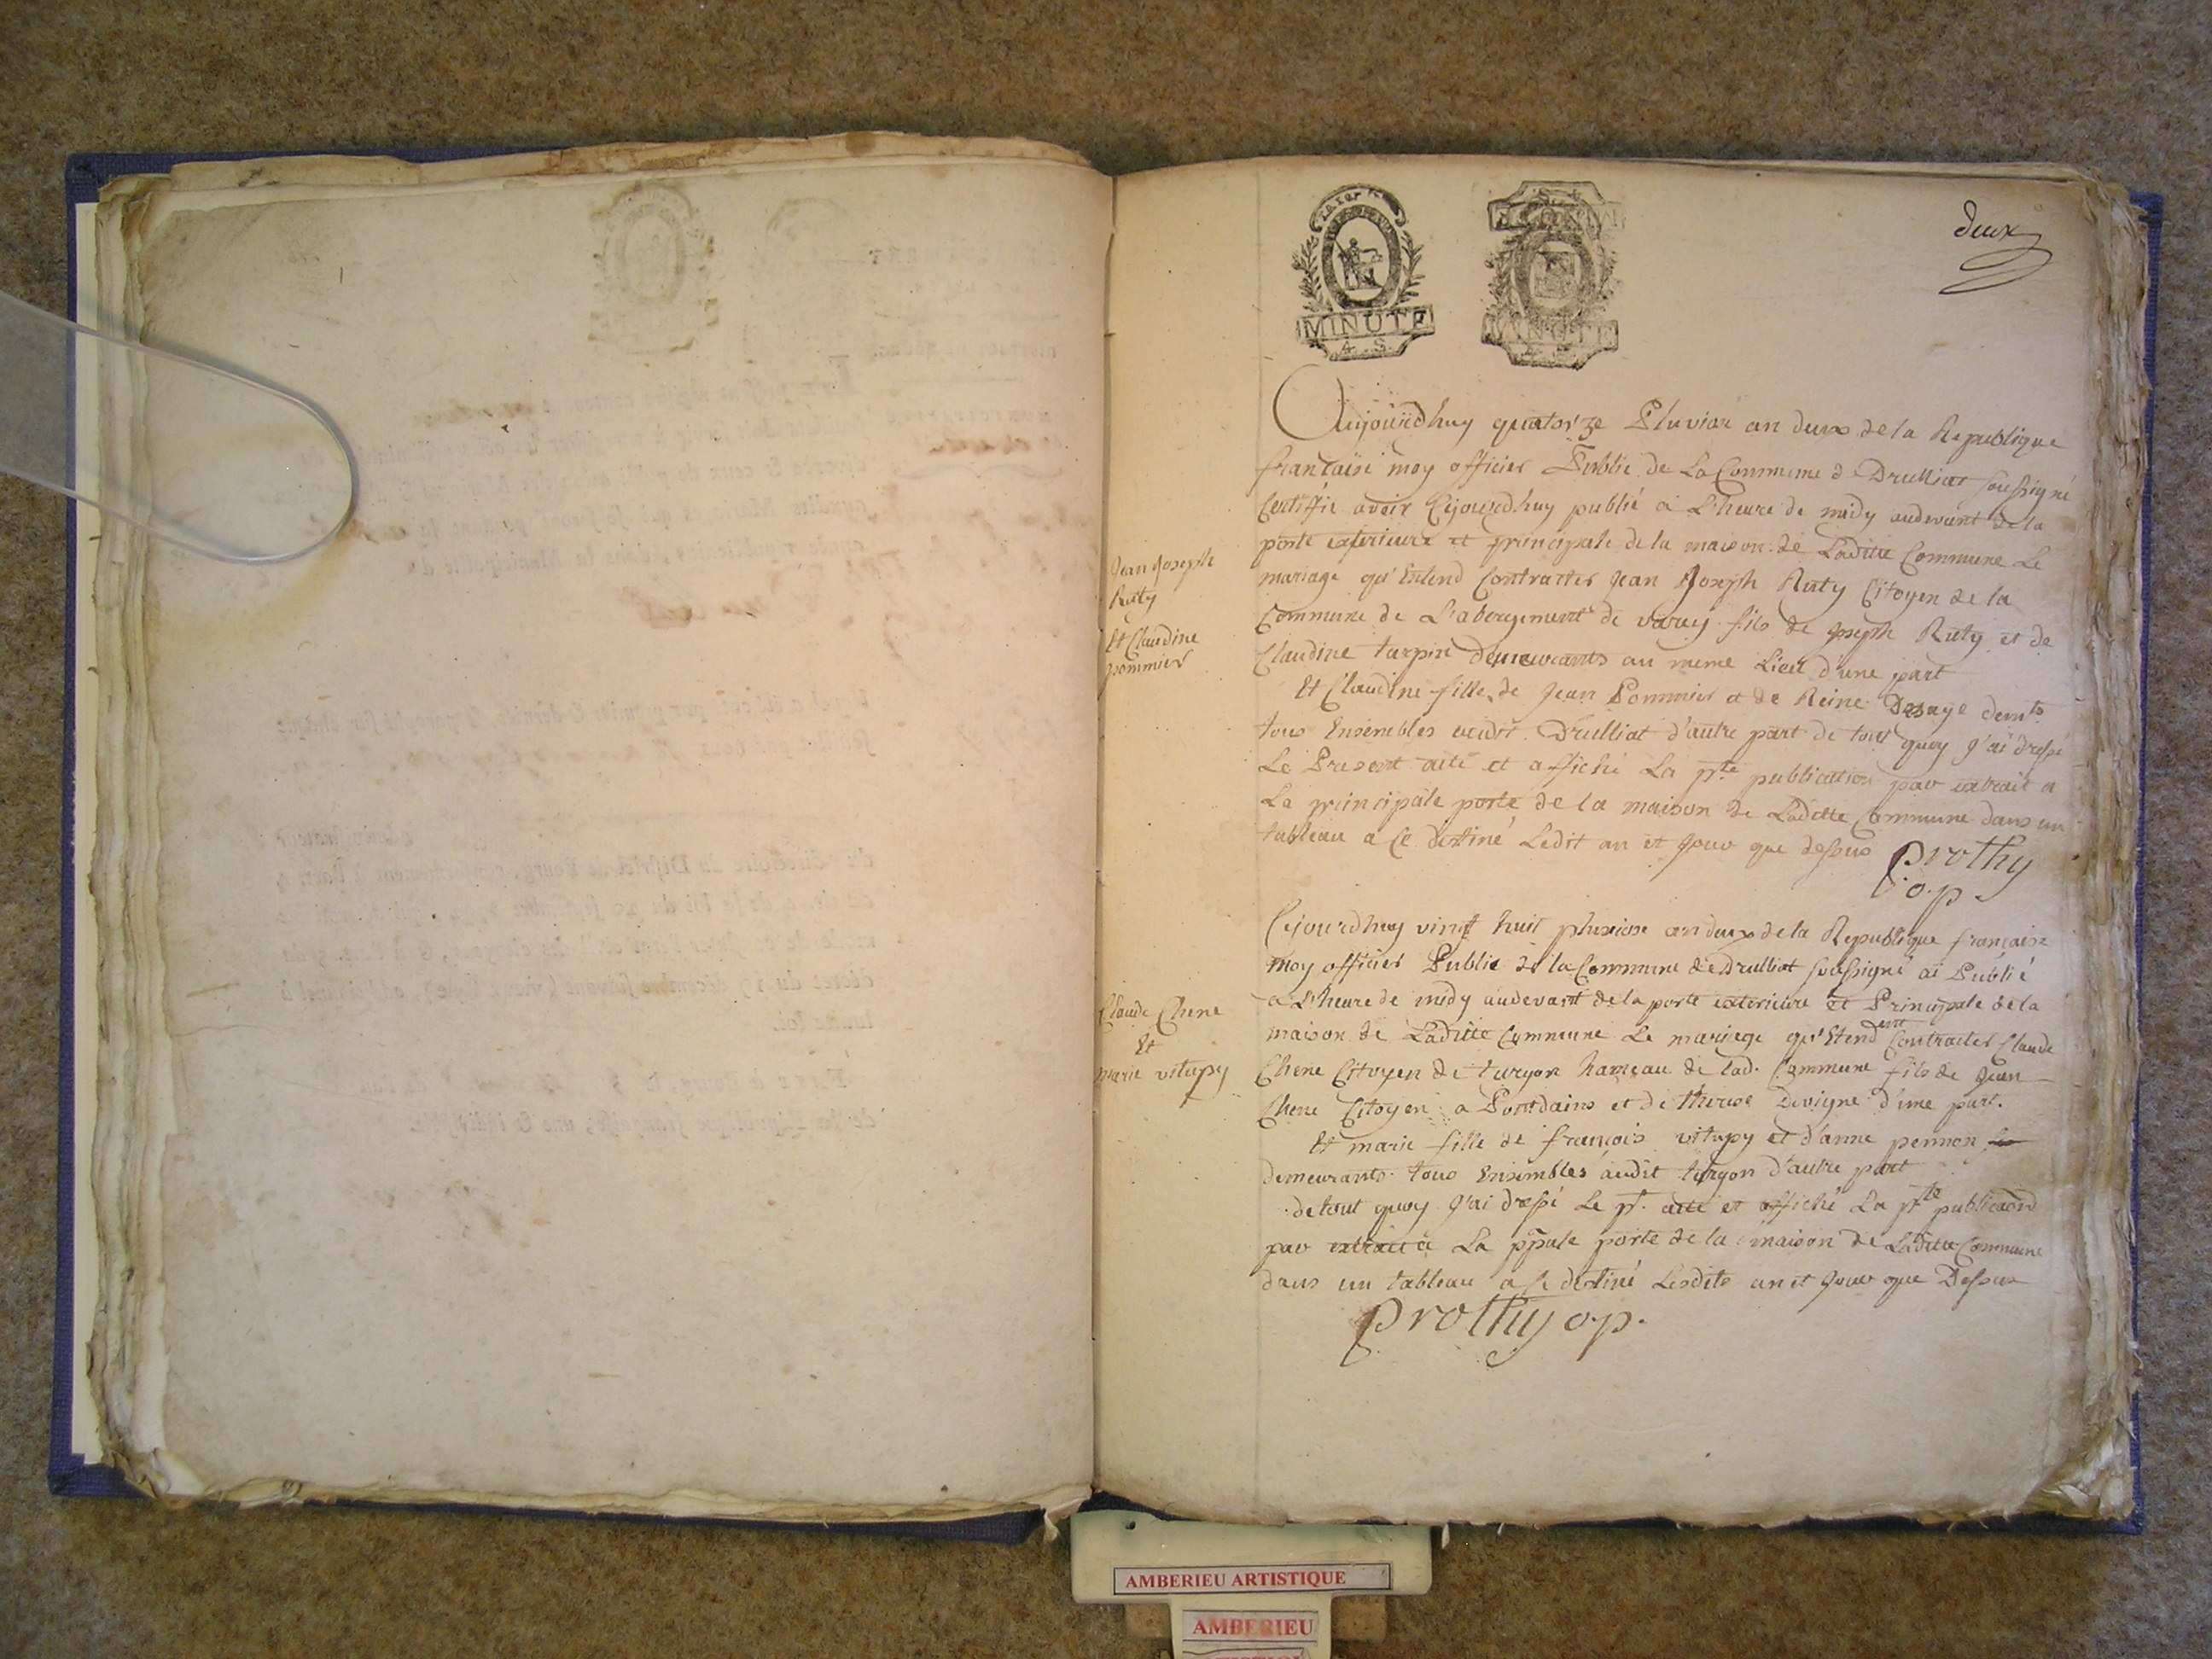 deux
MINUTE
4. S.
MINUTE
Aujourdhuy quatorze Pluviose an deux de la Republique
francaise moy officier Public de La Commune de Drulliat soussigné
Certiffie avoir Cejourdhuy publié a L'heure de midy audevant de la
porte exterieure et principale de la maison de Laditte Commune Le
mariage qu'Entend Contracter Jean Joseph Ruty Citoyen de la
Commune de L'abergement de varey fils de Joseph Ruty et de
Claudine turpin demeurants au meme Lieu d'une part
Et Claudine fille de Jean Pommier et de Reine demts
tous Ensembles audit Drulliat d'autre part de tout quoy j'ai dressé
Le Present acte et affiché La pnte publication par extrait a
La principale porte de la maison de Laditte Commune dans un
tableau a Ce destiné Ledit an et Jour que dessus
prothy
o.p
Jean Joseph
Ruty
Et Claudine
pommier
Cejourdhuy vingt huit pluviose an deux de la Republique francaise
moy officier Public de la Commune de Drulliat soussigné ai Publié
a L'heure de midy audevant de la porte exterieure et Principale de la
maison de Laditte Commune Le mariage qu'Etendent Contracter Claude
Chene Citoyen de turgon hameau de lad. Commune fils de Jean
Chene Citoyen a Pontdains et de therese Devigne d'une part.
Et marie fille de francois vitupy et d'anne pennon
demeurants tous Ensembles audit turgon d'autre part
de tout quoy J'ai dressé Le pt. acte et affiché La pnte publicaon
par extrait a La ppale porte de la maison de Laditte Commune
dans un tableau a Ce destiné Lesdits an et Jour que Dessus
prothy o.p.
Claude Chene
Et
marie vitupy
AMBERIEU ARTISTIQUE
AMBERIEU